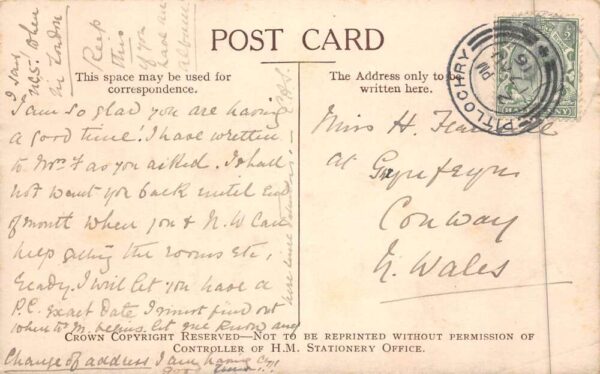 I saw
No. 5. when
in London
Keep
this
if you
have an
album
POST CARD
This space may be used for
correspondence.
The Address only to be
written here.
PITLOCHRY
PM
16
I am so glad you are having
a good time. I have written
to Mrs F as you asked. I shall
not want you back until end
of month when you & N. W can
help getting the rooms etc,
ready. I will let you have a
P.C. exact date I must find out
when begins. let me know any
Change of address I am having
good time!!
Miss H.
at
Conway
N. Wales
CROWN COPYRIGHT RESERVED—NOT TO BE REPRINTED WITHOUT PERMISSION OF
CONTROLLER OF H.M. STATIONERY OFFICE.